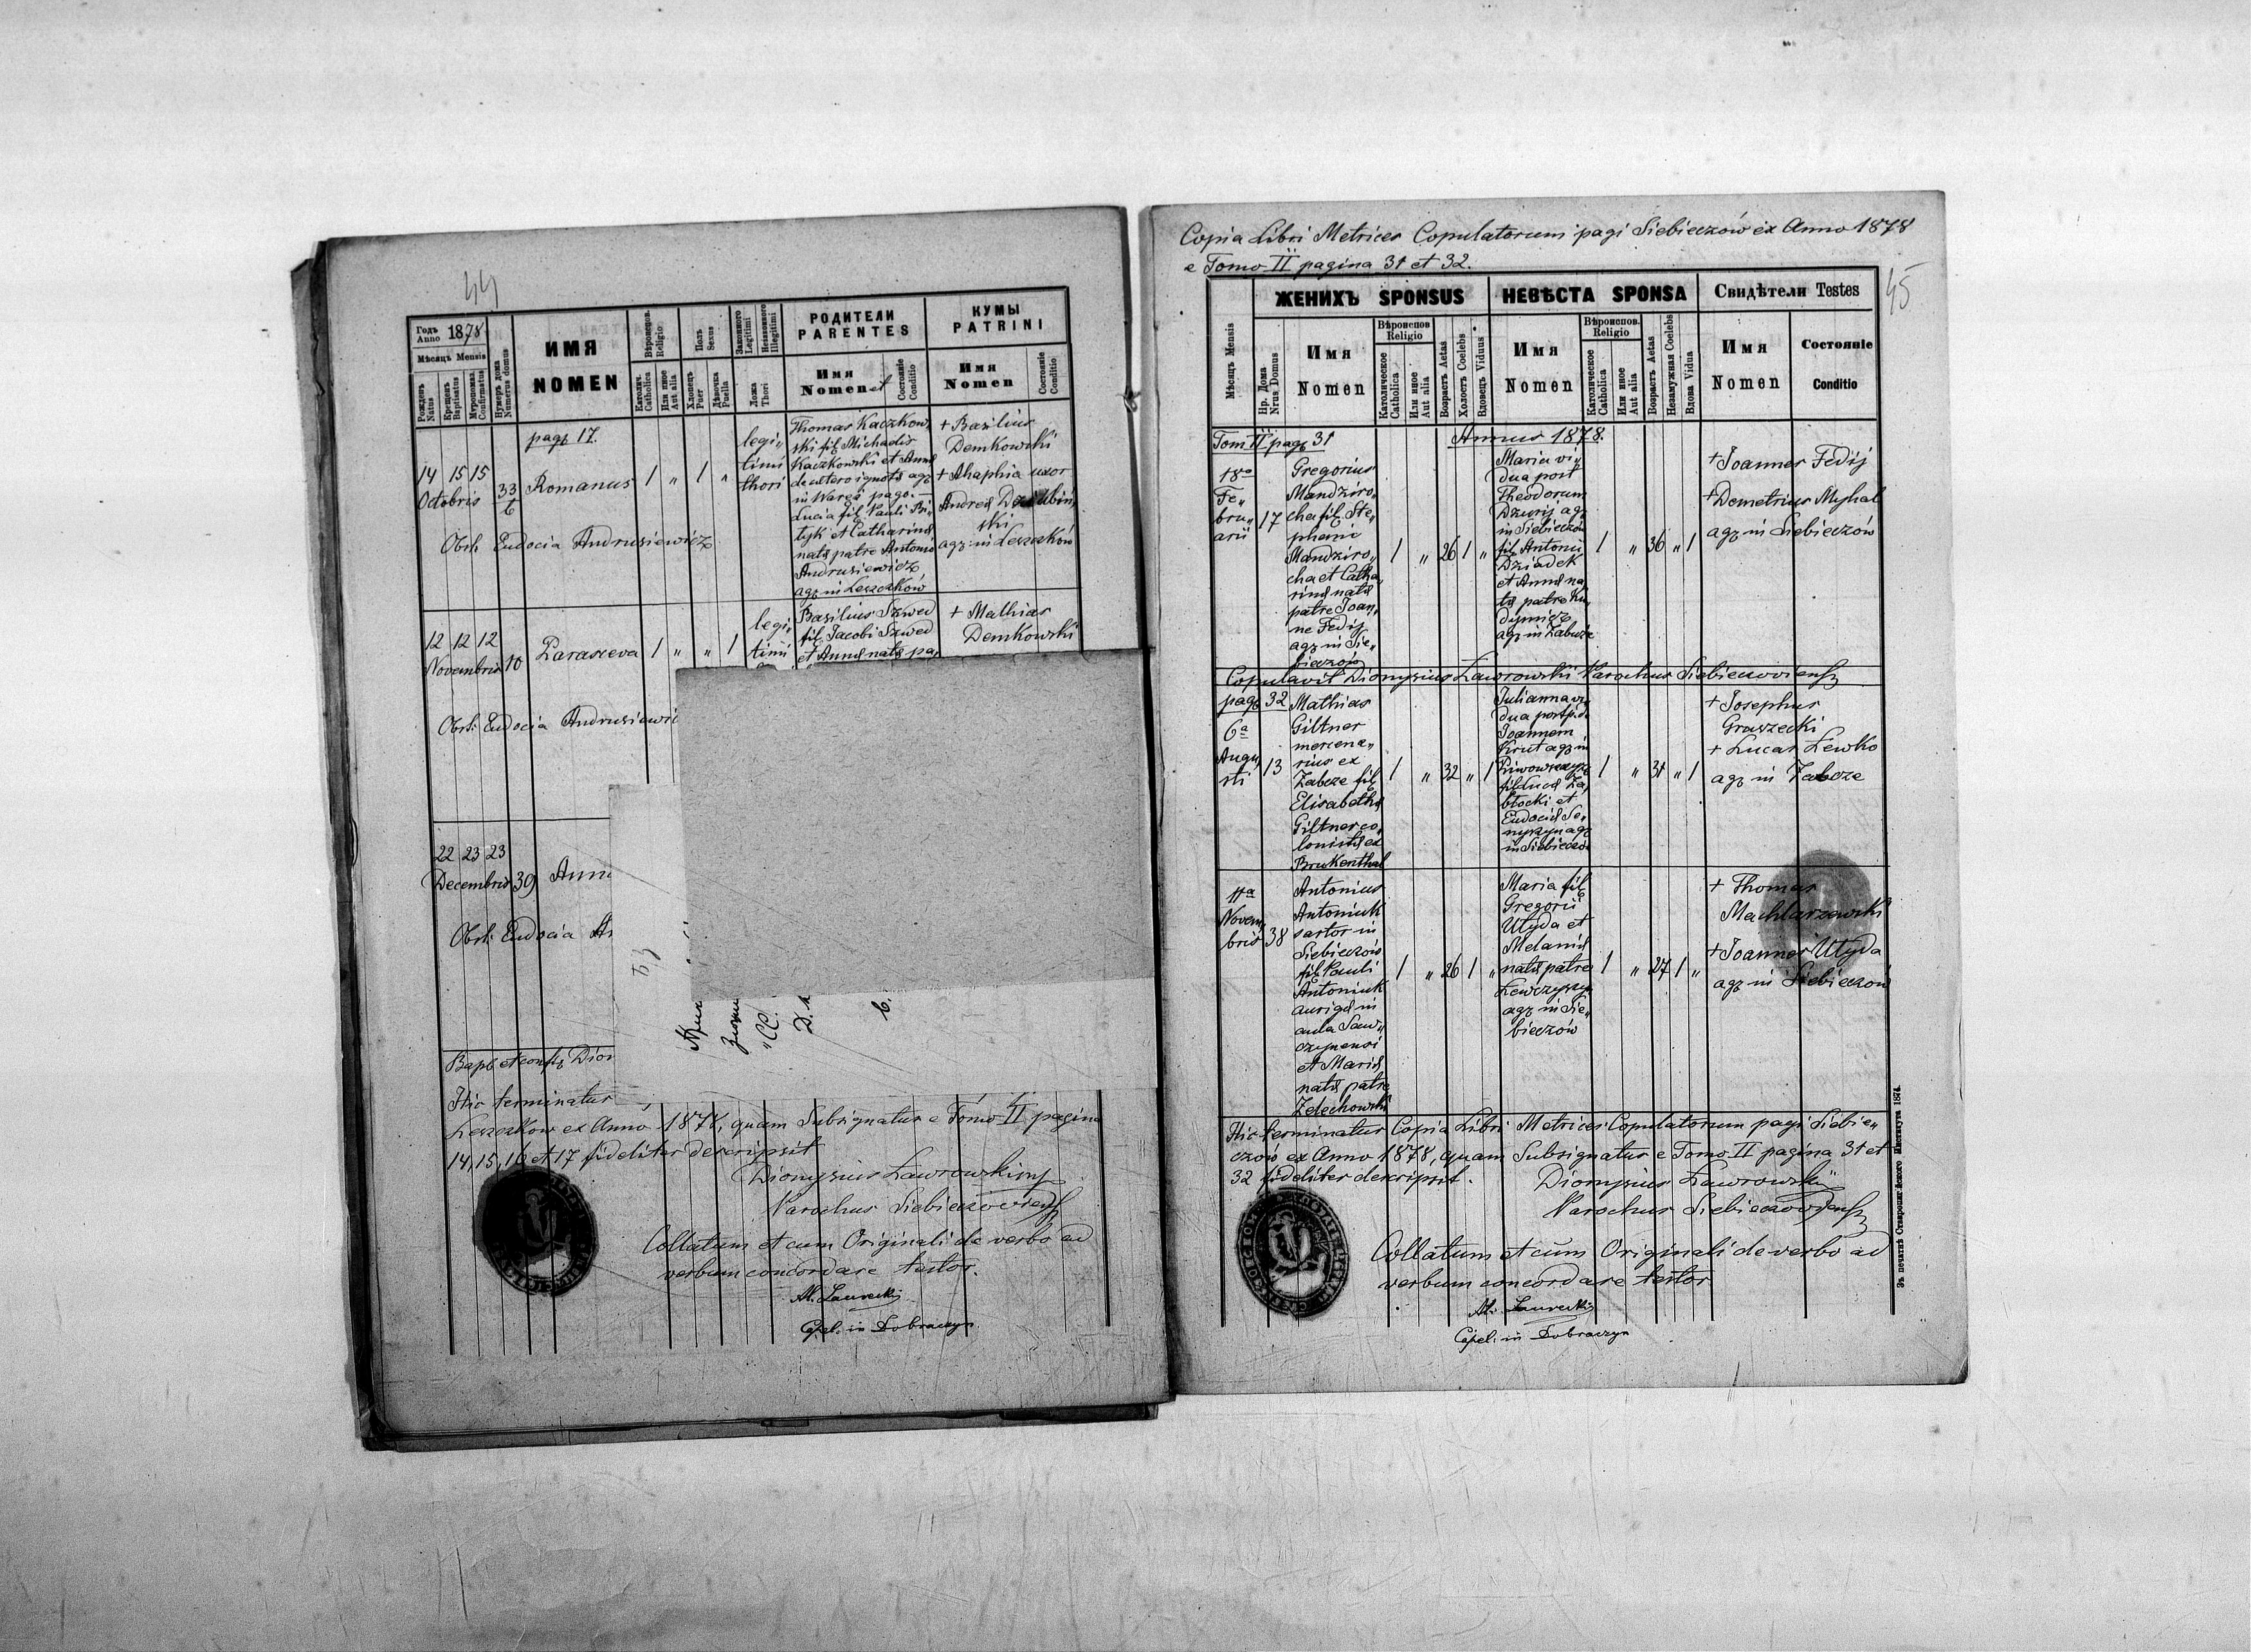 44
Годъ Anno 1878
Мѣсяцъ Mensis
Рожденъ Natus
Крещенъ Baptisatus
Мѵропомаз. Confirmatus
Нумеръ дома Numerus domus
ИМЯ
NOMEN
Вѣроисповѣд. Religio
Католич. Catholica
Или иное Aut alia
Полъ Sexus
Хлопець Puer
Дѣвочка Puella
Законного Legitimi
Незаконного Illegitimi
Ложа Thori
РОДИТЕЛИ
PARENTES
Имя
Nomen et
Состояніе Conditio
КУМЫ
PATRINI
Имя
Nomen
Состояніе Conditio
pag 17.
14 15 15
Octobris
33
6
Romanus
1 „ 1 „
legi„
timi
thori
Thomas Kaczkow„
ski fil Michaelis
Kaczkowski et Anna
de cetero ignota agr
in Waręż pago.—
Lucia fil Pauli Bi„
tyk et Catharina
nata patre Antonio
Andrusiewicz
agr in Leszczków
+ Basilius
Demkowski
+ Ahaphia uxor
Andrea
ski
agr in Leszczków
Obst: Eudocia Andrusiewicz
12 12 12
Novembris 10
Parasceva
1 „ „ 1
legi„
timi
Basilius Szwed
fil Jacobi Szwed
et Anna nata pa„
+ Mathias
Demkowski
Obst: Eudocia Andrusiewi
22 23 23
Decembris 39
Ann
Obst: Eudocia
Bapt et conf Dion
Hic terminatur
Leszczków ex Anno 1878, quam Subsignatus e Tomo II pagina
14, 15, 16 et 17 fideliter descripsit
Dionysius Ławrowski
Parochus Siebieczoviensis
Collatum et cum Originali de verbo ad
verbum concordare testor.
Capel. in Dobraczyn
Copia Libri Metrices Copulatorum pagi Siebieczów ex Anno 1878
e Tomo II pagina 31 et 32.
45
Мѣсяцъ Mensis
ЖЕНИХЪ SPONSUS
Нр. Дома Nrus Domus
Имя
Nomen
Вѣроисповѣд. Religio
Католическое Catholica
Или иное Aut alia
Возрастъ Aetas
Холостъ Coelebs
Вдовецъ Viduus
НЕВѢСТА SPONSA
Имя
Nomen
Вѣроисповѣд. Religio
Католическое Catholica
Или иное Aut alia
Возрастъ Aetas
Незамужная Coelebs
Вдова Vidua
Свидѣтели Testes
Имя
Nomen
Состояніе
Conditio
Tom II pag 31
Annus 1878.
18va
Fe„
bru„
arii
17
Gregorius
Mandziro„
cha fil Ste„
phani
Mandziro„
cha et Catha„
rina nata
patre Joan„
ne Fedij
agr in Sie„
bieczów
1 „ 26 1 „
Maria vi„
dua post
Theodorum
Dzurij agr
in Siebieczów
fil Antonii
Dziadek
et Anna na„
ta patre
agr in Zabcze
1 „ 36 „ 1
+ Joannes Fedij
+ Demetrius Myhal
agr in Siebieczów
Copulavit Dionysius Ławrowski Parochus Siebieczoviensis
pag 32
6a
Augu„
sti
13
Mathias
Giltner
mercena„
rius ex
Zabcze fil
Elisabetha
Giltner co„
lonista ex
Brukenthal
1 „ 32 „ 1
Julianna vi„
dua post
Joannem
Krut agr in
fil Luca Za„
błocki et
Eudocia Se„
agr
in Siebieczów
1 „ 31 „ 1
+ Josephus
Graszecki
+ Lucas Lewko
agr in Zabcze
11a
Novem„
bris
38
Antonius
Antoniuk
sartor in
Siebieczów
fil Pauli
Antoniuk
auriga in
aula Saw„
czynensi
et Maria
nata patre
Zelechowski
1 „ 26 1 „
Maria fil
Gregorii
Utyda et
Melania
nata patre
Lewczyszyn
agr in Sie„
bieczów
1 „ 27 1 „
+ Thomas
Machlarzewski
+ Joannes Utyda
agr in Siebieczów
Hic terminatur Copia Libri Metrices Copulatorum pagi Siebie„
czów ex Anno 1878, quam Subsignatus e Tomo II pagina 31 et
32 fideliter descripsit.
Dionysius Ławrowski
Parochus Siebieczoviensis
Collatum et cum Originali de verbo ad
verbum concordare testor
Capel. in Dobraczyn
Зъ печатнѣ Ставропигійского Института 1874.